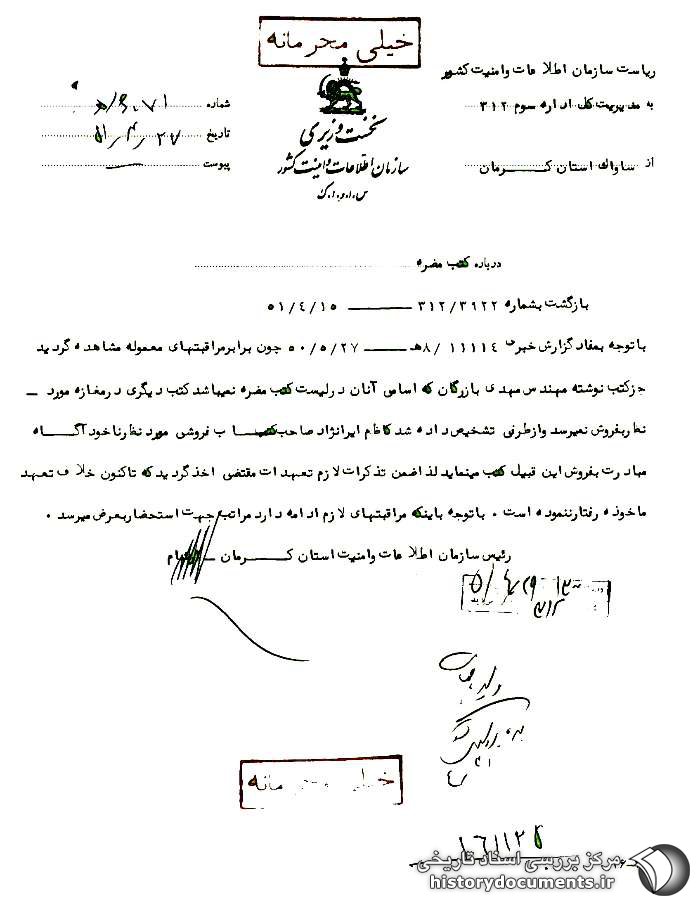 خیلی محرمانه
ریاست سازمان اطلاعات وامنیت کشور
به مدیریت کل اداره سوم ۳۱۲
از ساواک استان کــرمان
نخست وزیری
سازمان اطلاعات وامنیت کشور
س.ا.و.ا.ک
شماره
تاریخ ۵۱٫۴٫۲۷
پیوست
درباره کتب مضره
بازگشت بشماره ۳۱۲/۳۹۲۲ ــــ ۵۱/٤/۱۵
باتوجه بمفاد گزارش خبری ۱۱۱۱٤ /۸هـ ــــ ۵۰/۵/۲۷ چون برابر مراقبتهای معموله مشاهده گردید
جزکتب نوشته مهندس مهدی بازرگان که اسامی آنان درلیست کتب مضره نمیباشد کتب دیگری درمغازه مورد ــ
نظر بفروش نمیرسد وازطرفی تشخیص داده شد کاظم ایرانژاد صاحب کتاب فروشی مورد نظر ناخود آگــاه
مبادرت بفروش این قبیل کتب مینماید لذا ضمن تذکرات لازم تعهدات مقتضی اخذ گردید که تاکنون خلاف تعهد
ماخوذه رفتار ننموده است . باتوجه باینکه مراقبتهای لازم ادامه دارد مراتب جهت استحضار بعرض میرسد .
رئیس سازمان اطلاعات وامنیت استان کــرمان ــ
۳۱۲
خیلی محرمانه
۱٦۱۱۲۵
مرکز بررسی اسناد تاریخی
historydocuments.ir